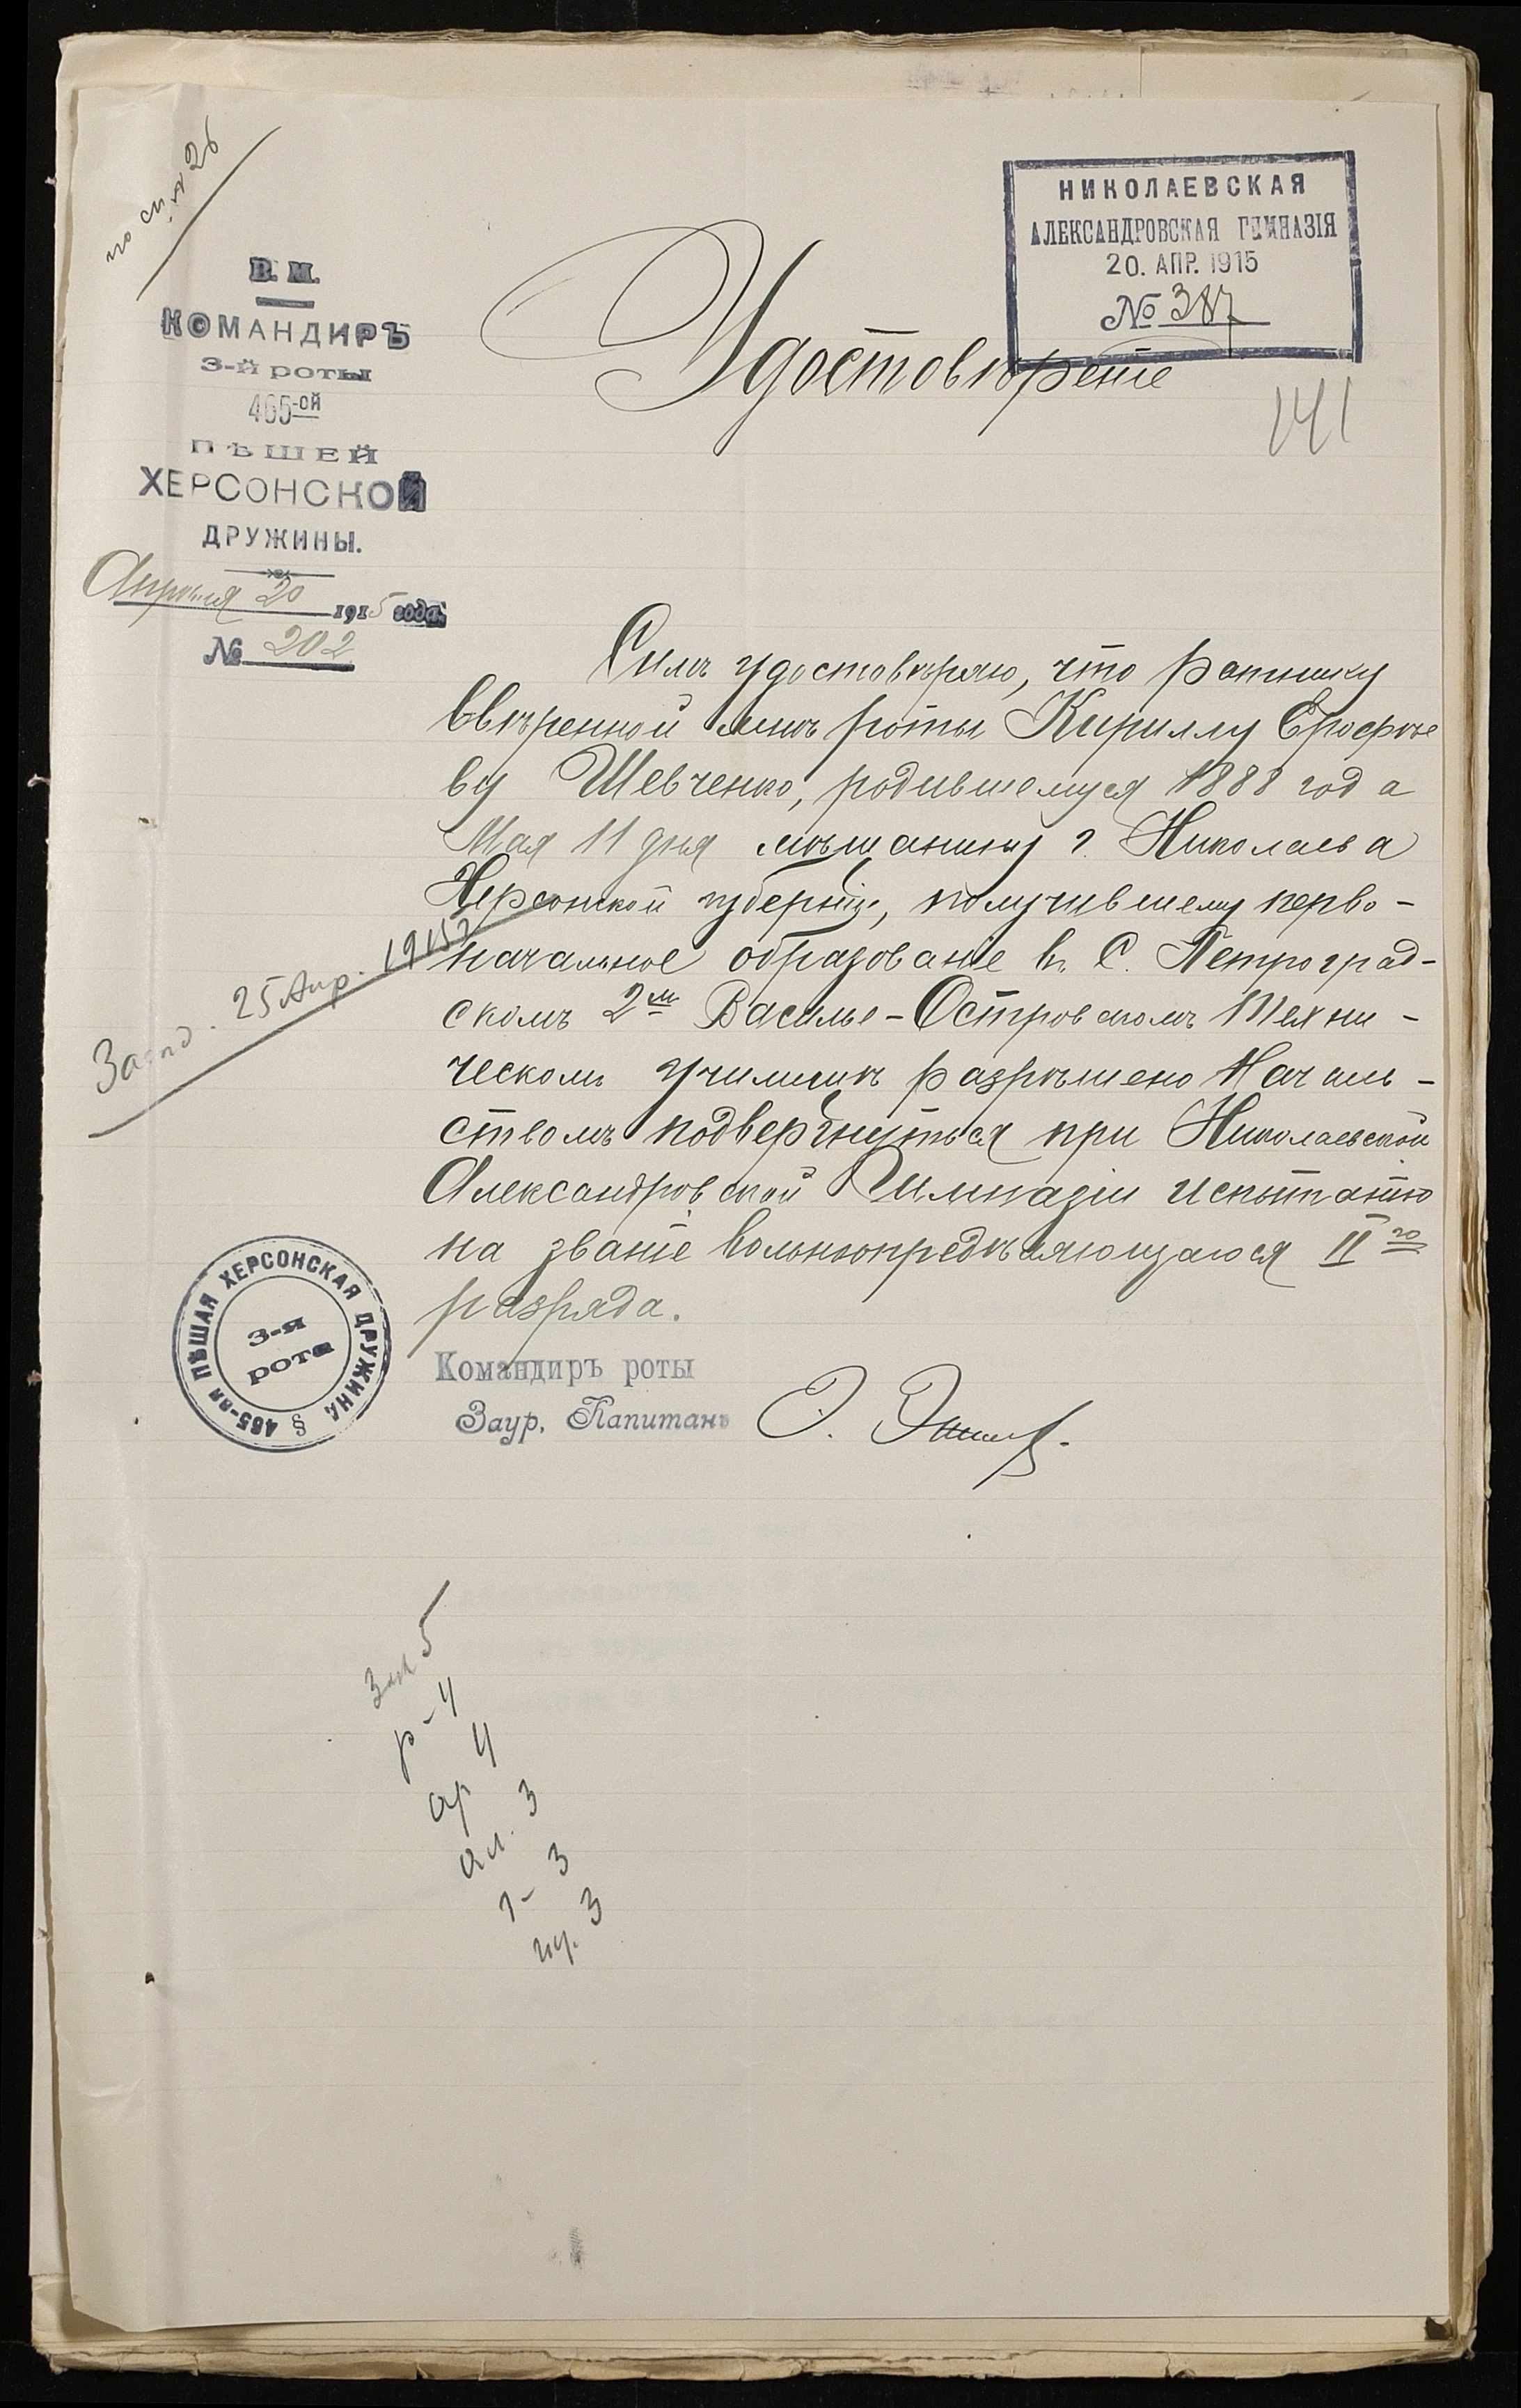 по сп. № 26
В. М.
КОМАНДИРЪ
3-й роты
465-ой
ПѢШЕЙ
ХЕРСОНСКОЙ
ДРУЖИНЫ.
Апрѣля 20 1915 года.
№ 202
НИКОЛАЕВСКАЯ
АЛЕКСАНДРОВСКАЯ ГИМНАЗІЯ
20. АПР. 1915
№ 387
Удостовѣреніе
141
Симъ удостовѣряю, что ратнику
ввѣренной мнѣ роты Кириллу Ерофѣе
ву Шевченко, родившемуся 1888 года
Мая 11 дня мѣщанину г. Николаева
Херсонской губерніи, получившему перво-
начальное образованіе въ С. Петроград-
скомъ 2м Василье-Островскомъ Техни-
ческомъ училищѣ разрѣшено Началь-
ствомъ подвергнуться при Николаевской
Александровской Гимназіи испытанію
на званіе вольноопредѣляющагося II го
разряда.
25 Апр. 1915 г.
465-ая ПѢШАЯ ХЕРСОНСКАЯ ДРУЖИНА §
3-я
рота
Командиръ роты
Заур. Капитанъ
5
р - 4
ар 4
ал. 3
г - 3
3